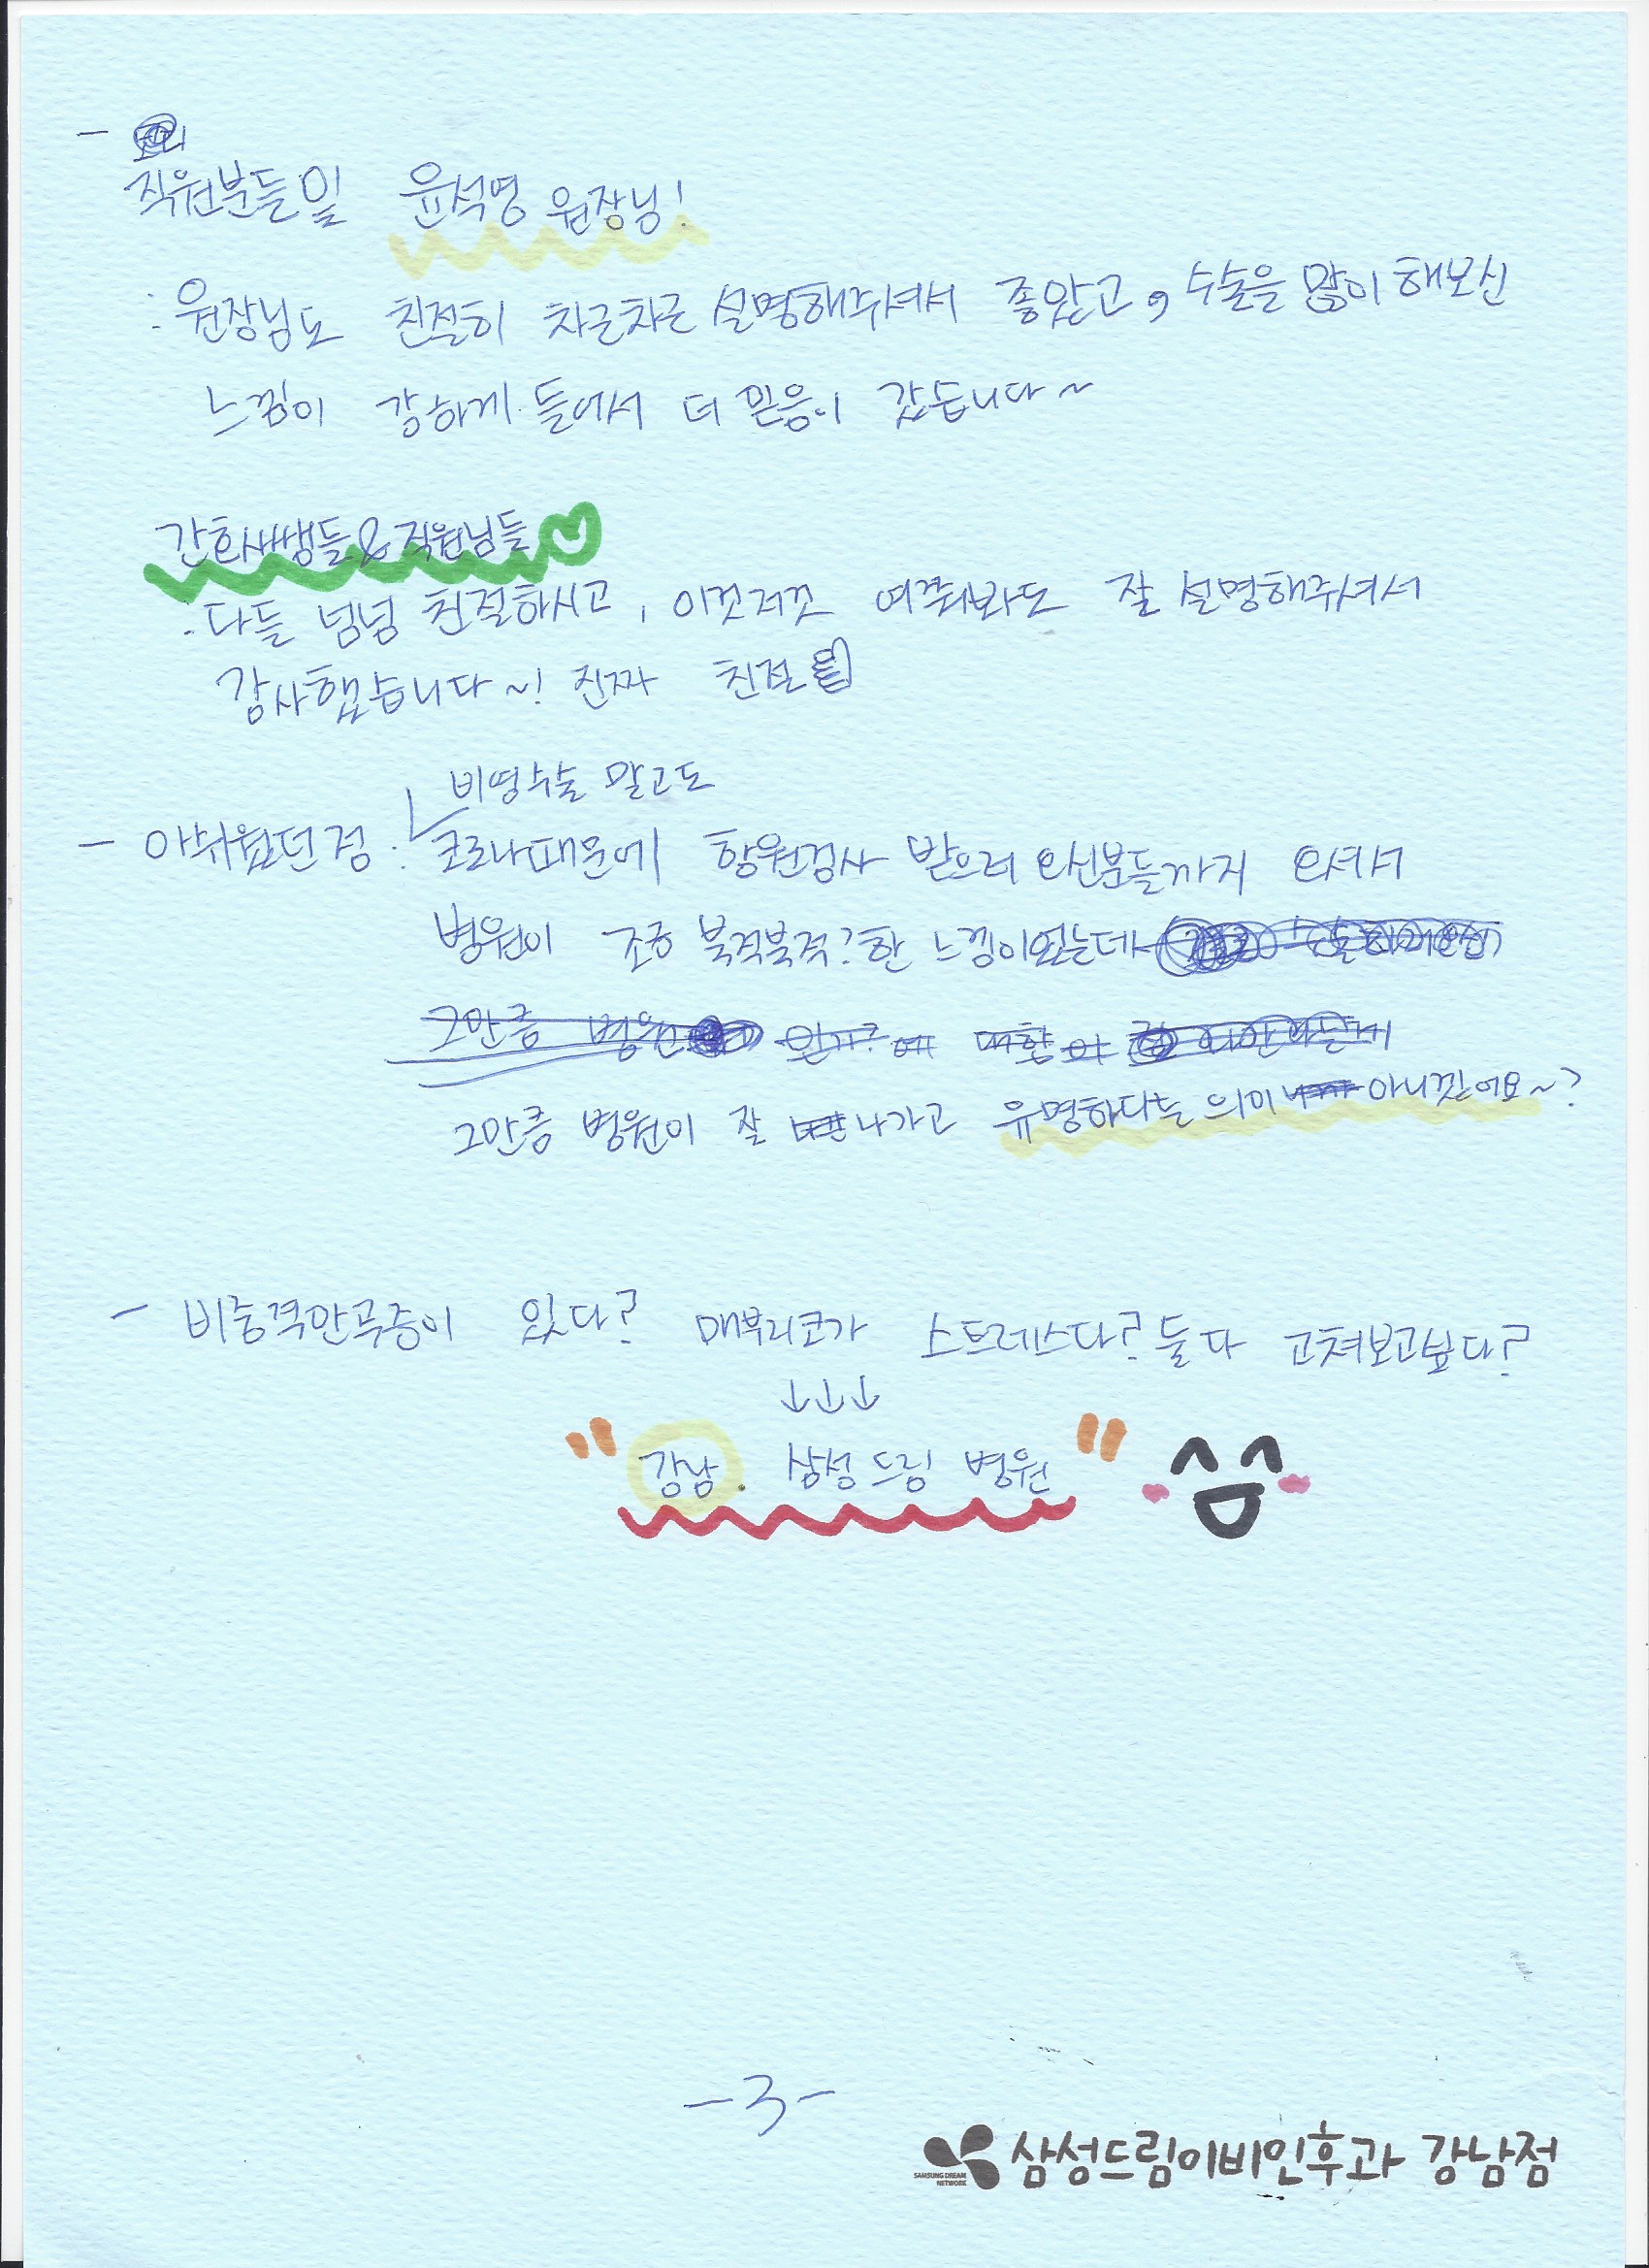 -
직원분들및 윤석영 원장님!
: 원장님도 친절히 차근차근 설명해주셔서 좋았고, 수술을 많이 해보신
느낌이 강하게 들어서 더 믿음이 갔습니다~
간호사쌤들&직원님들♡
: 다들 넘넘 친절하시고, 이것저것 여쭤봐도 잘 설명해주셔서
감사했습니다~! 진짜 친절
비염수술 말고도
- 아쉬웠던점 : 코로나때문에 항원검사 받으러 오신분들까지 오셔서
병원이 조금 북적북적?한 느낌이었는데
그만큼 병원
그만큼 병원이 잘 나가고 유명하다는 의미 아니겠어요~?
- 비중격만곡증이 있다? 매부리코가 스트레스다? 둘다 고쳐보고싶다?
↓↓↓
"강남. 삼성드림 병원"
-3-
SAMSUNG DREAM
NETWORK
삼성드림이비인후과 강남점